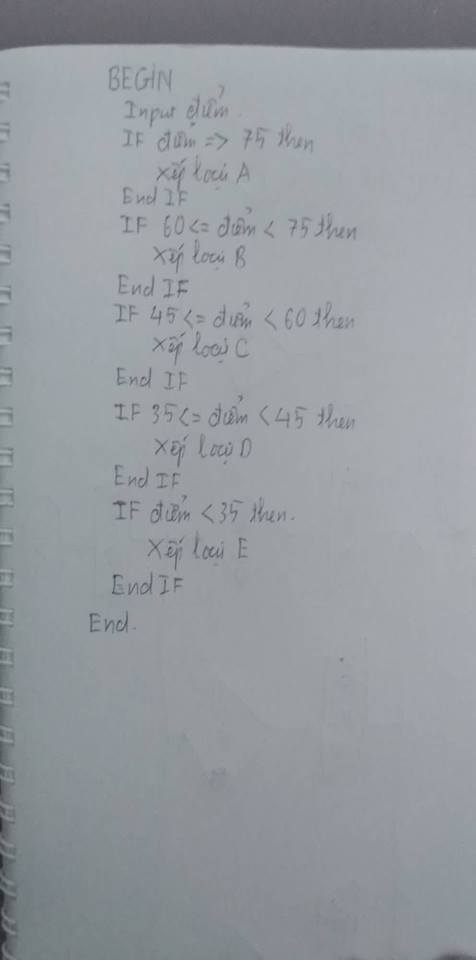 BEGIN
Input điểm.
IF điểm => 75 then
Xếp loại A
End IF
IF 60 <= điểm < 75 then
Xếp loại B
End IF
IF 45 <= điểm < 60 then
Xếp loại C
End IF
IF 35 <= điểm < 45 then
Xếp loại D
End IF
IF điểm < 35 then.
Xếp loại E
End IF
End.